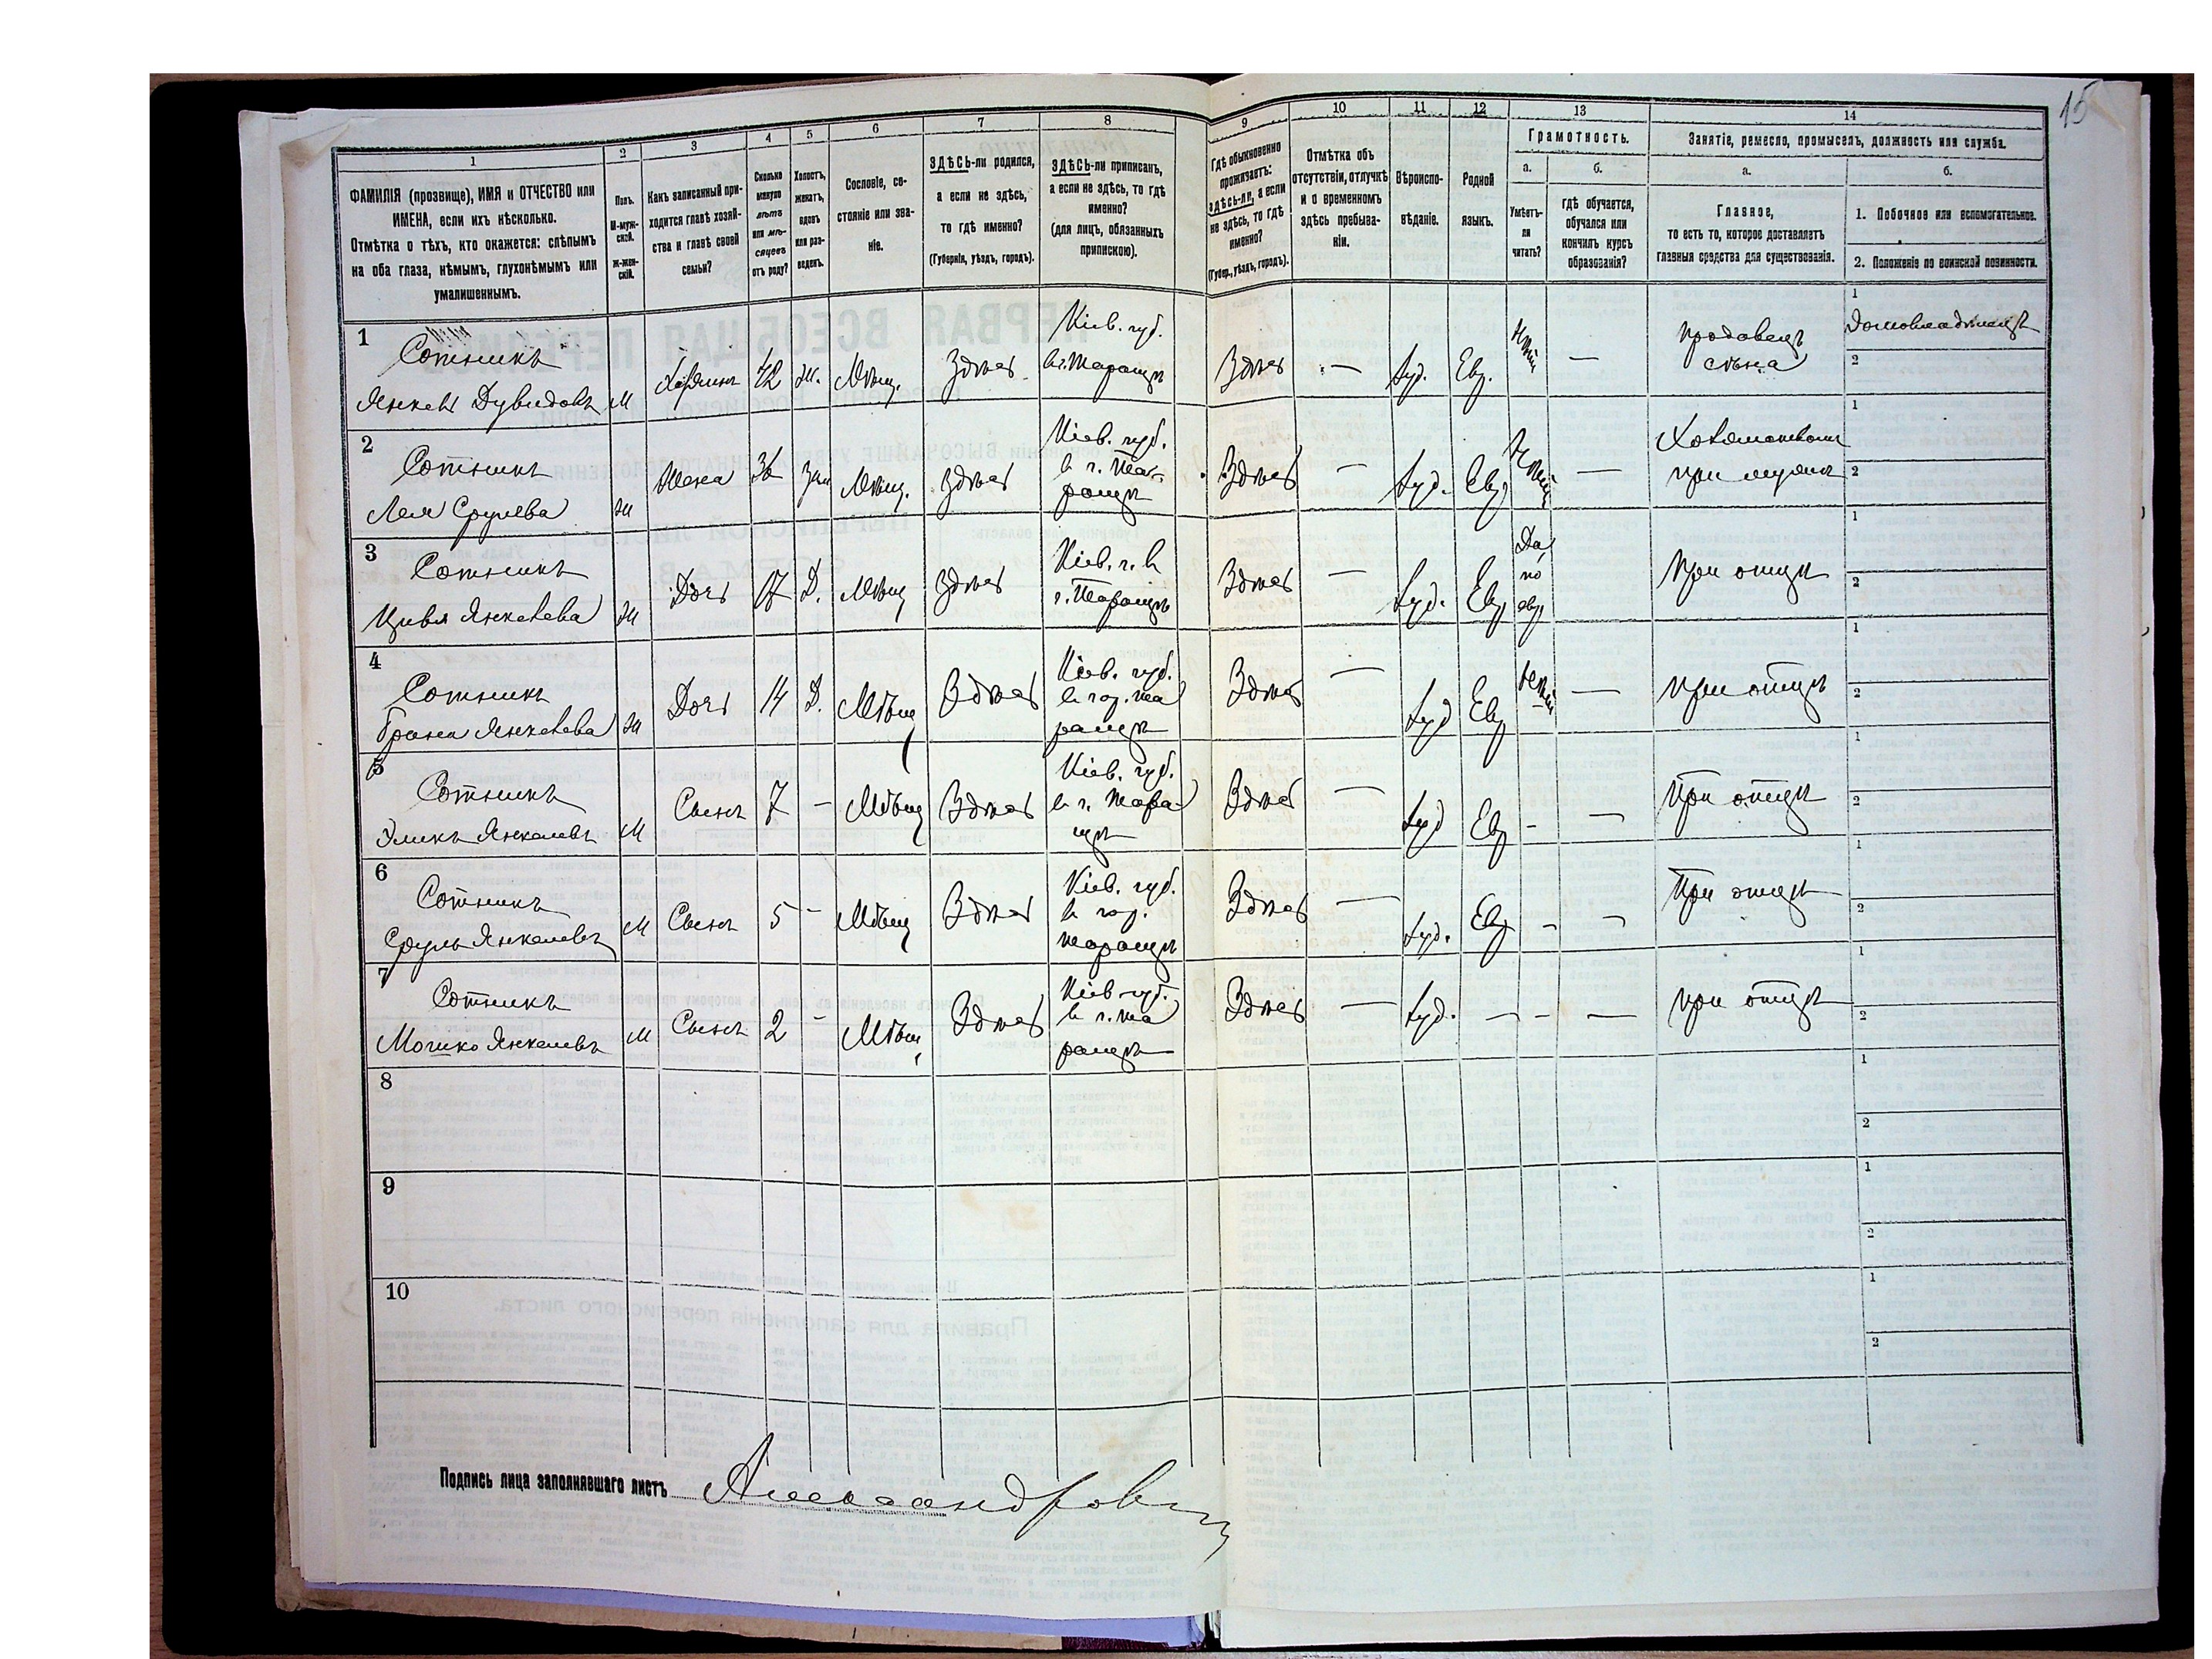 15
1
ФАМИЛІЯ (прозвище), ИМЯ и ОТЧЕСТВО или
ИМЕНА, если ихъ нѣсколько.
Отмѣтка о тѣхъ, кто окажется: слѣпымъ
на оба глаза, нѣмымъ, глухонѣмымъ или
умалишеннымъ.
2
Полъ.
М-муж-
ской.
Ж-жен-
скій.
3
Какъ записанный при-
ходится главѣ хозяй-
ства и главѣ своей
семьи?
4
Сколько
минуло
лѣтъ
или мѣ-
сяцевъ
отъ роду?
5
Холостъ,
женатъ,
вдовъ
или раз-
веденъ.
6
Сословіе, со-
стояніе или зва-
ніе.
7
ЗДѢСЬ-ли родился,
а если не здѣсь,
то гдѣ именно?
(Губернія, уѣздъ, городъ).
8
ЗДѢСЬ-ли приписанъ,
а если не здѣсь, то гдѣ
именно?
(для лицъ, обязанныхъ
припискою).
9
Гдѣ обыкновенно
проживаетъ:
здѣсь-ли, а если
не здѣсь, то гдѣ
именно?
(Губер., уѣздъ, городъ).
10
Отмѣтка объ
отсутствіи, отлучкѣ
и о временномъ
здѣсь пребыва-
ніи.
11
Вѣроиспо-
вѣданіе.
12
Родной
языкъ.
13
Грамотность.
а.
Умѣетъ-
ли
читать?
б.
гдѣ обучается,
обучался или
кончилъ курсъ
образованія?
14
Занятіе, ремесло, промыселъ, должность или служба.
а.
Главное,
то есть то, которое доставляетъ
главныя средства для существованія.
б.
1. Побочное или вспомогательное.
2. Положеніе по воинской повинности.
1
Сотникъ
Янкель Дувидовъ
М
Хозяинъ
42
ж.
Мѣщ.
Здѣсь
Кіев. губ.
в г. Таращѣ
Здѣсь
—
Іуд.
Евр.
—
продавецъ
сѣна
1
Домовладѣлецъ
2
2
Сотникъ
Лея Срулева
Ж
Жена
36
зам
Мѣщ.
Здѣсь
Кіев. губ.
в г. Та-
ращѣ
Здѣсь
—
Іуд.
Евр
—
при мужѣ
1
2
3
Сотникъ
Цивя Янкелева
Ж
Дочь
17
Д.
Мѣщ
Здѣсь
Кіев. г. в
г. Таращѣ
Здѣсь
—
Іуд.
Евр
Да,
по
евр
При отцѣ
1
2
4
Сотникъ
Брана Янкелева
Ж
Дочь
14
Д.
Мѣщ
Здѣсь
Кіев. губ.
в гор. Та
ращѣ
Здѣсь
—
Іуд
Евр
—
при отцѣ
1
2
5
Сотникъ
Янкелевъ
М
Сынъ
7
-
Мѣщ
Здѣсь
Кіев. губ.
в г. Тара-
щѣ
Здѣсь
—
Іуд
Евр
-
—
При отцѣ
1
2
6
Сотникъ
Сруль Янкелевъ
М
Сынъ
5
-
Мѣщ
Здѣсь
Кіев. губ.
в гор.
Таращѣ
Здѣсь
—
Іуд.
Евр
-
—
При отцѣ
1
2
7
Сотникъ
Мошко Янкелевъ
М
Сынъ
2
-
Мѣщ
Здѣсь
Кіев губ.
в г. Та
ращѣ
Здѣсь
—
Іуд.
—
-
—
при отцѣ
1
2
8
1
2
9
1
2
10
1
2
Подпись лица заполнявшаго листъ